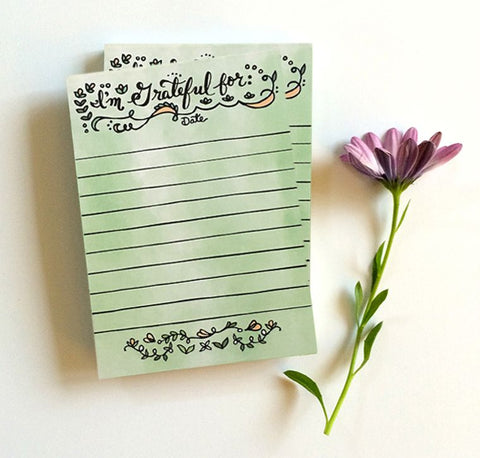 I'm Grateful for:
Date